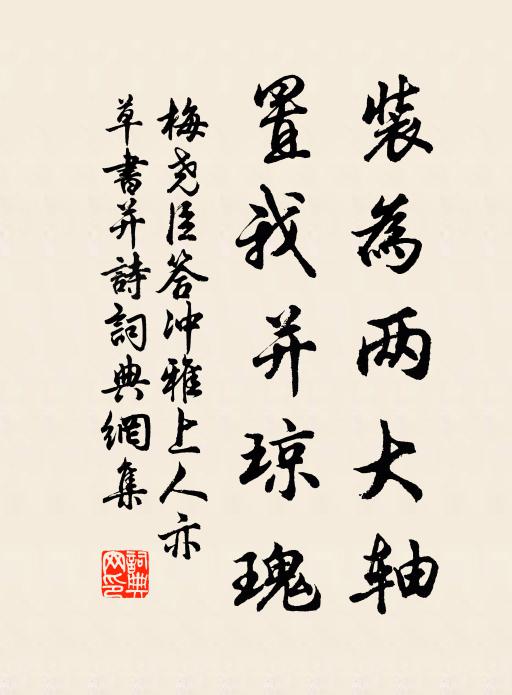 装為两大轴
置我并琼瑰
梅尧臣答冲雅上人亦
草書并詩詞典網集
詞典网印